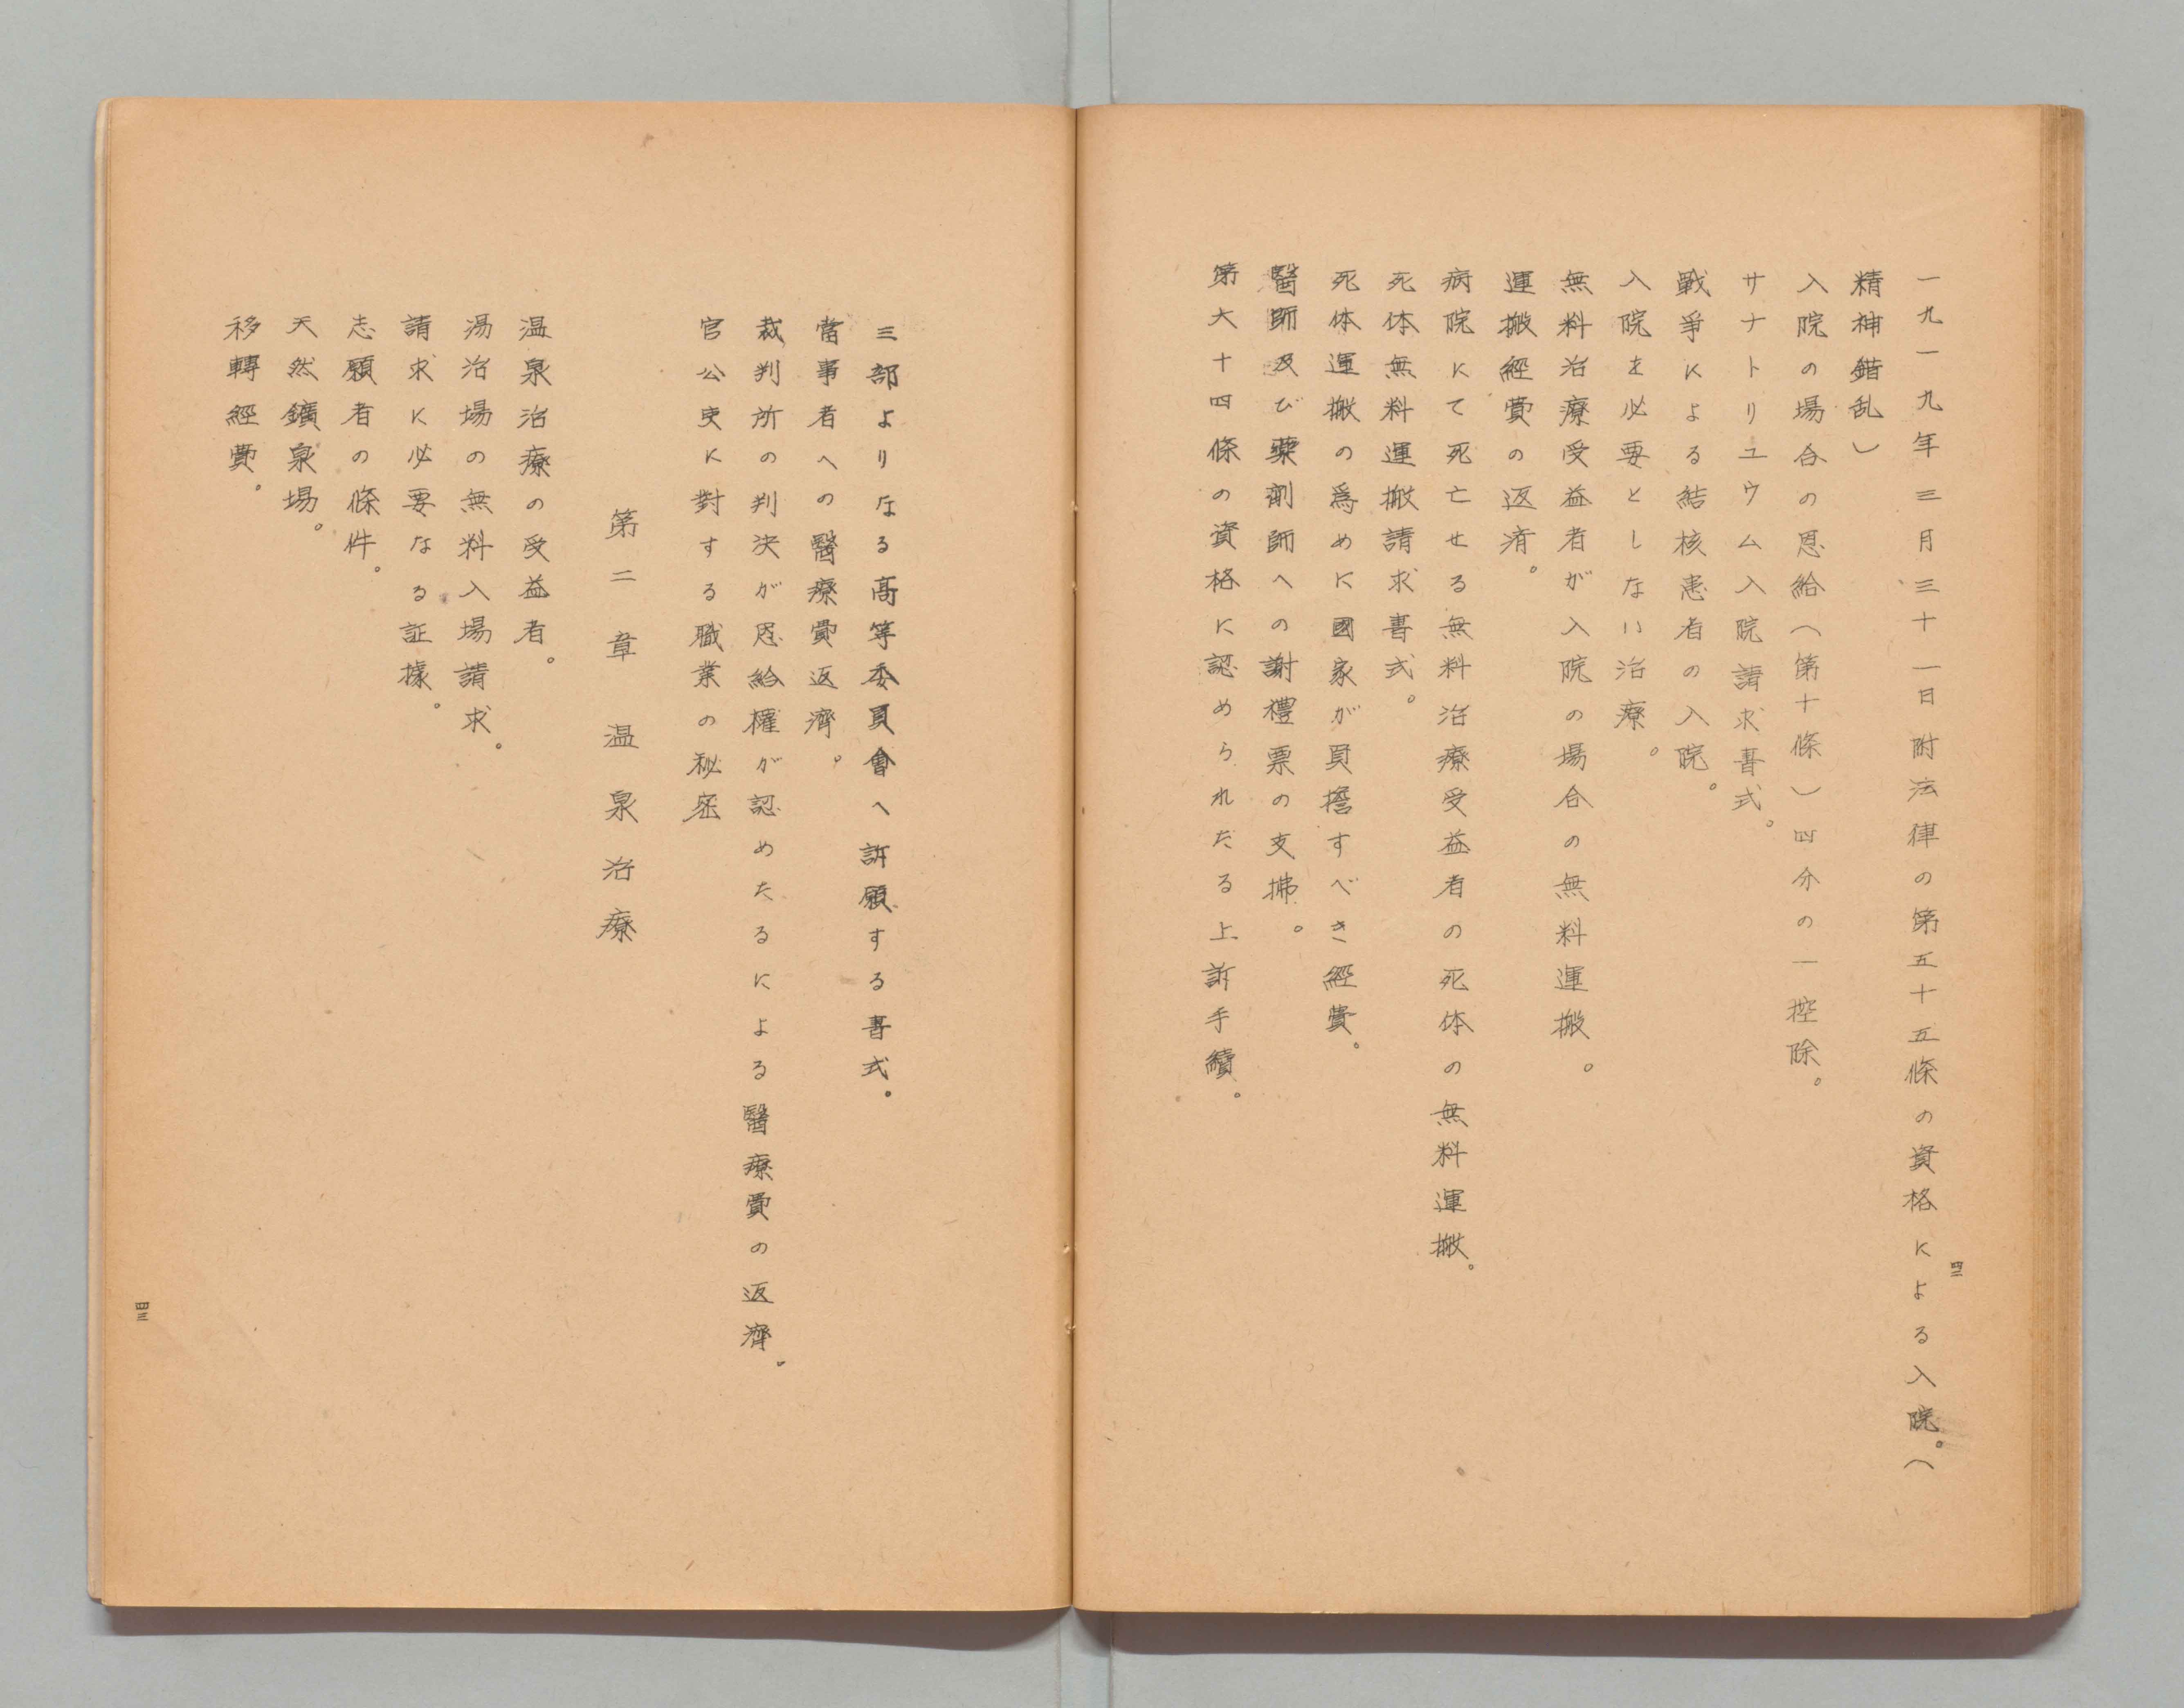 四二
一九一九年三月三十一日附法律の第五十五條の資格による入院。（
精神錯乱）
入院の場合の恩給（第十條）四分の一控除。
サナトリユウム入院請求書式。
戰爭による結核患者の入院。
入院を必要としない治療。
無料治療受益者が入院の場合の無料運搬。
運搬經費の返済。
病院にて死亡せる無料治療受益者の死体の無料運搬。
死体無料運搬請求書式。
死体運搬の爲めに國家が負擔すべき經費。
醫師及び藥劑師への謝禮票の支拂。
第六十四條の資格に認められたる上訴手續。
三部よりなる高等委員會へ訴願する書式。
當事者への醫療費返濟。
裁判所の判決が恩給權が認めたるによる醫療費の返濟。
官公吏に對する職業の秘密
第二章 温泉治療
温泉治療の受益者。
湯治場の無料入場請求。
請求に必要なる証據。
志願者の條件。
天然鑛泉場。
移轉經費。
四三